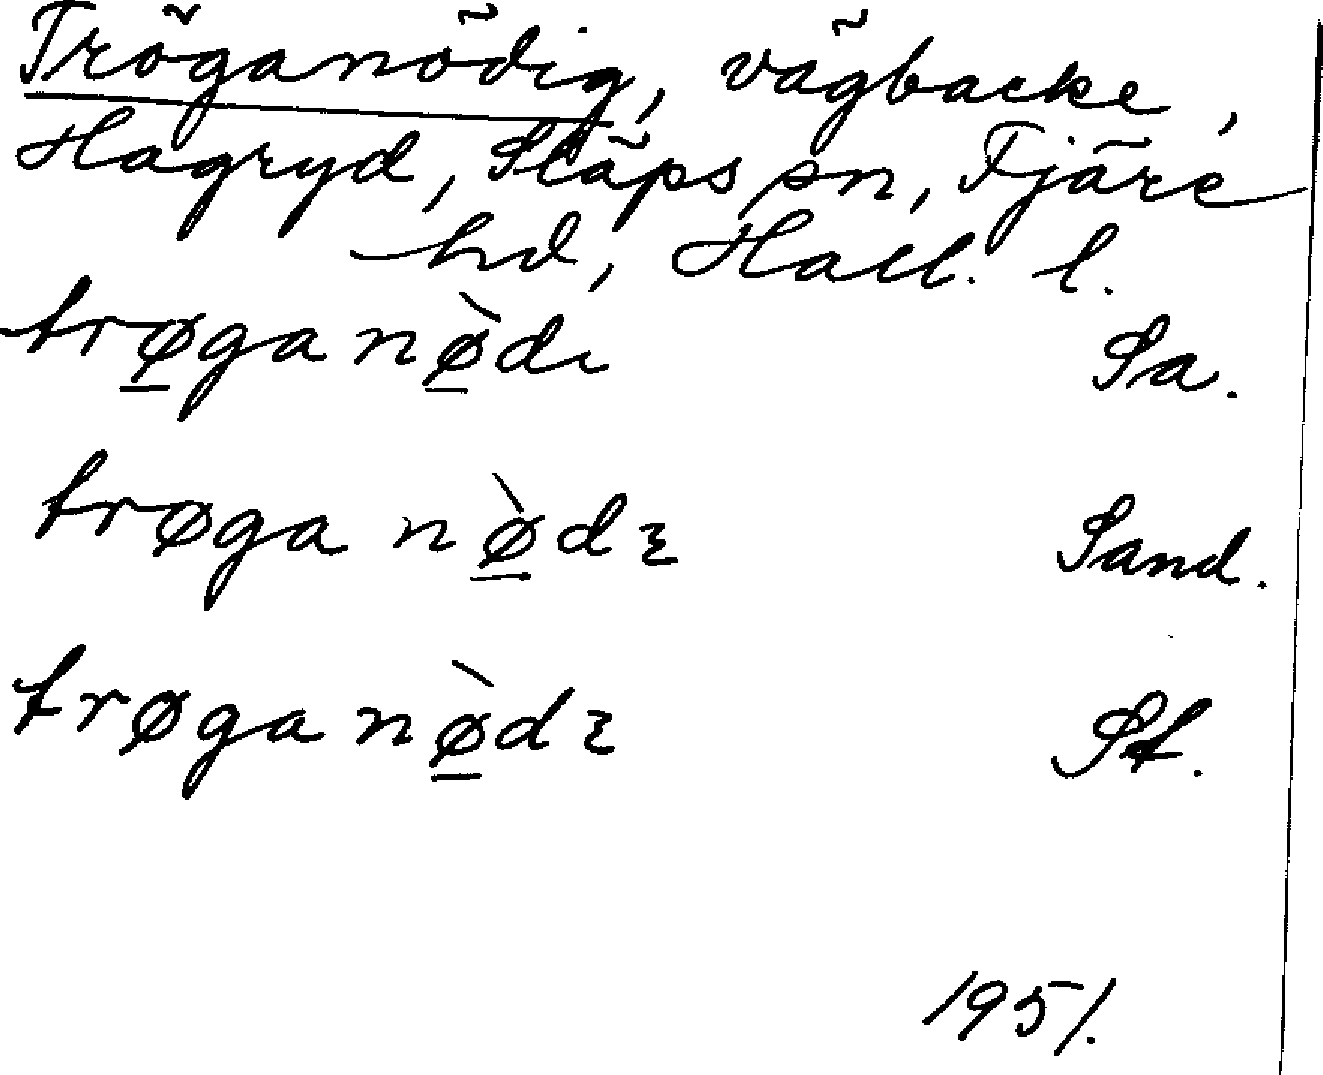 Tröganödig, vägbacke,
Hagryd, Släps sn, Fjäre
hd, Hall. l.
trø̲ganø̲̀dı Sa.
trøga nø̲̀dɛ Sand.
trøganø̲̀dɛ St.
1951.